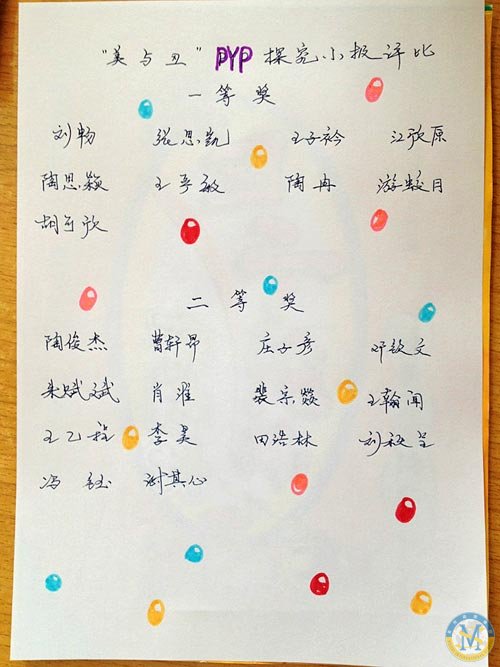 "美与丑" PYP 探究小报评比
一等奖
刘畅 张思凯 王子衿 江欣原
陶思颖 王予敏 陶冉 游皎月
胡可欣
二等奖
陶俊杰 曹轩昂 庄子彦 邓款文
朱斌斌 肖淮 裴宗燚 王翰闻
王乙程 李昊 田浩林 刘秋呈
冯钰 谢其心
M